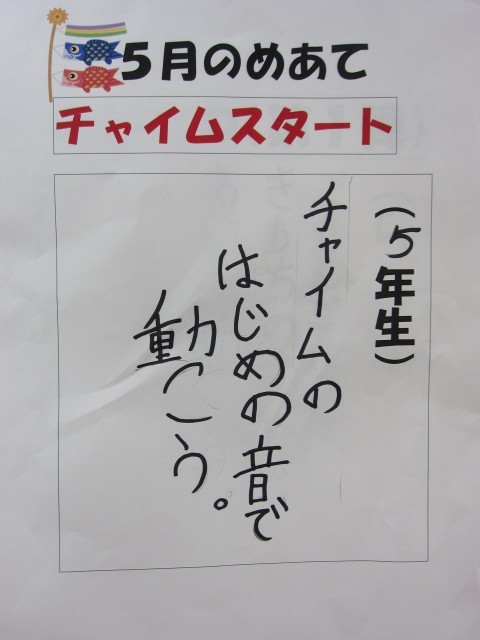 5月のめあて
チャイムスタート
(5年生)
チャイムの
はじめの音で
動こう。